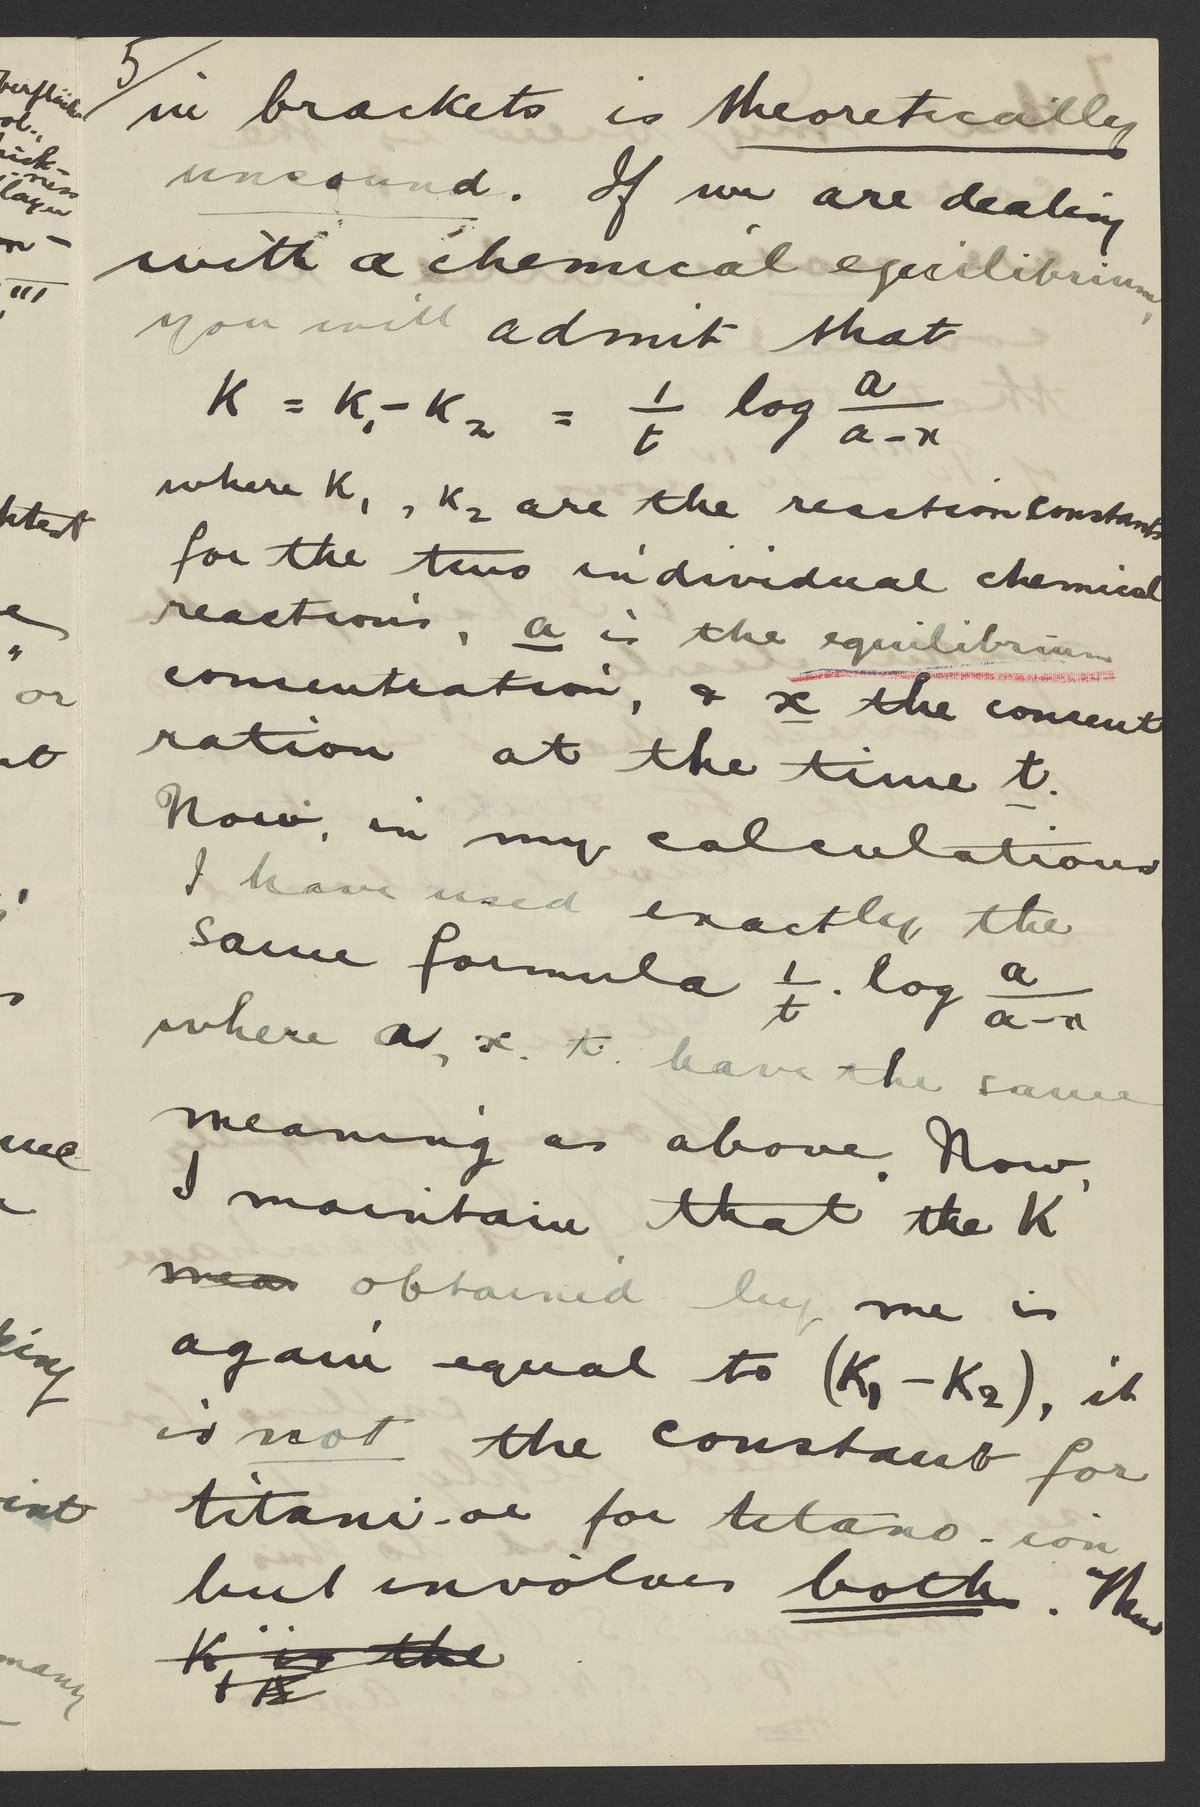 5/
in brackets is theoretically
unsound. If we are dealing
with a chemical equilibrium,
you will admit that
K = K₁ - K₂ = 1/t log a/a-x
where K₁, K₂ are the reaction constants
for the two individual chemical
reactions, a is the equilibrium
concentration, & x the concent
ration at the time t.
Now, in my calculations
I have used exactly the
same formula 1/t . log a/a-x
where a, x. t. have the same
meaning as above. Now,
I maintain that the K
meas obtained by me is
again equal to (K₁ - K₂), it
is not the constant for
titani- or for titano-ion
but involves both. Thus
K is the
or
nt
king
int
many